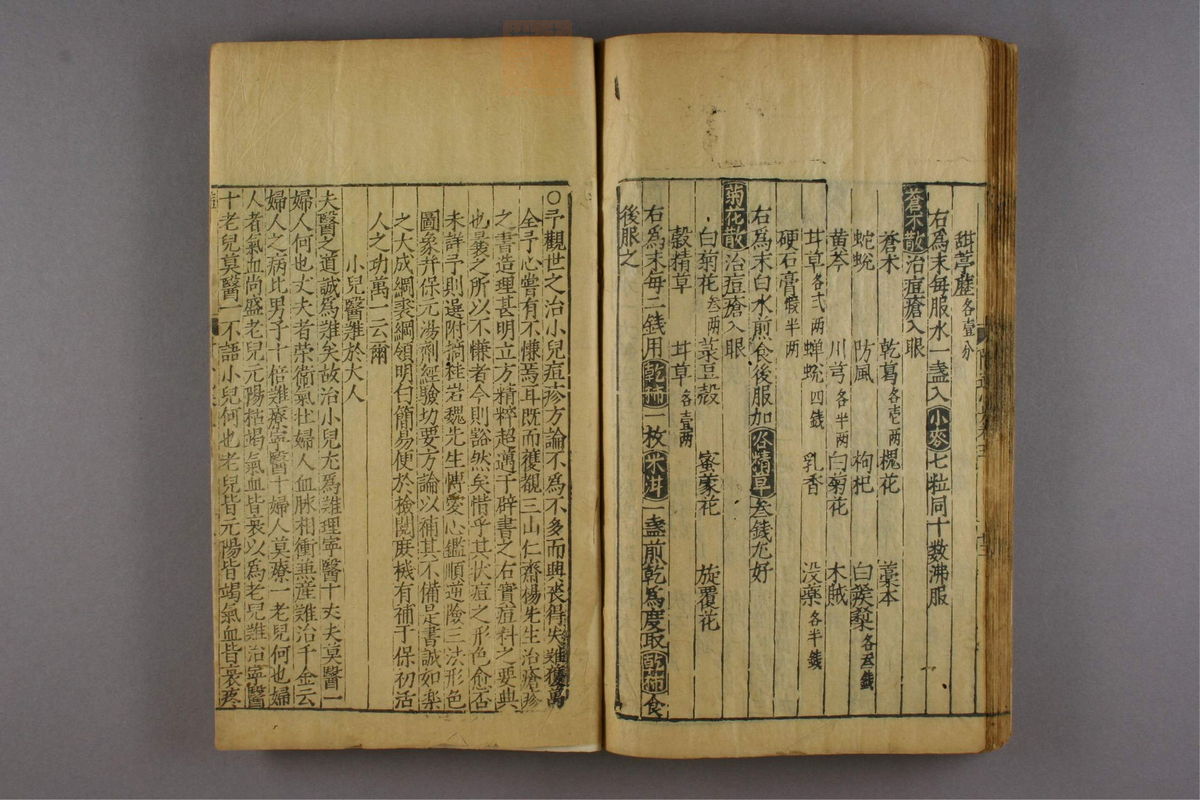 甜葶藶各壹分
右為末每服水一盞入小麥七粒同十数沸服
蒼朮散治痘瘡入眼
蒼朮 乾葛各壱两 槐花 藁本
蛇蛻 防風 枸杞 白蒺藜各叁錢
黄芩 川芎各半两 白菊花 木賊
耳草各弍两 蝉蛻四錢 乳香 没藥各半錢
硬石膏煅半两
右為末白水前食後服加谷精草叁錢尤好
菊花散治痘瘡入眼
白菊花叁两 菉豆殻 蜜蒙花 旋覆花
穀精草 耳草各壹两
右為末每二錢用乾柹一枚米泔一盞前乾為度取乾柹食
後服之
〇予觀世之治小兒痘疹方論不為不多而興丧得失難獲萬
全予心嘗有不慊焉耳既而獲覩三山仁齋楊先生治瘡疹
之書造理甚明立方精粹超邁于辟書之右實痘科之要典
也曩之所以不慊者今則豁然矣惜乎其状痘之形色愈否
未詳予則選附桂岩魏先生愽愛心鑑順逆險三法形色
圖象并保元湯劑經驗切要方論以補其不備是書誠如樂
之大成綱裘綱領明白簡易便於檢閲庶機有補于保初活
人之功萬一云爾
小兒醫難於大人
夫醫之道誠爲難矣故治小兒尤爲難理寕醫十丈夫莫醫一
婦人何也丈夫者荣衛氣壮婦人血脉相衝無産難治千金云
婦人之病比男子十倍難療寕醫十婦人莫療一老兒何也婦
人者氣血尚盛老兒元陽枯竭氣血皆衰以爲老兒難治寕醫
十老兒莫醫一不語小兒何也老兒皆元陽皆竭氣血皆衰疼